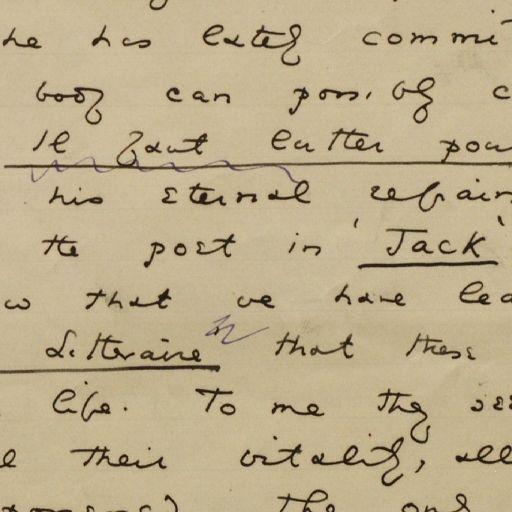 he has lately commi
body can possibly c
Il faut lutter pour
his eternal refrain
the poet in 'Jack'
w that we have lea
Litteraire that these
life. To me they see
l their vitality, all
The only